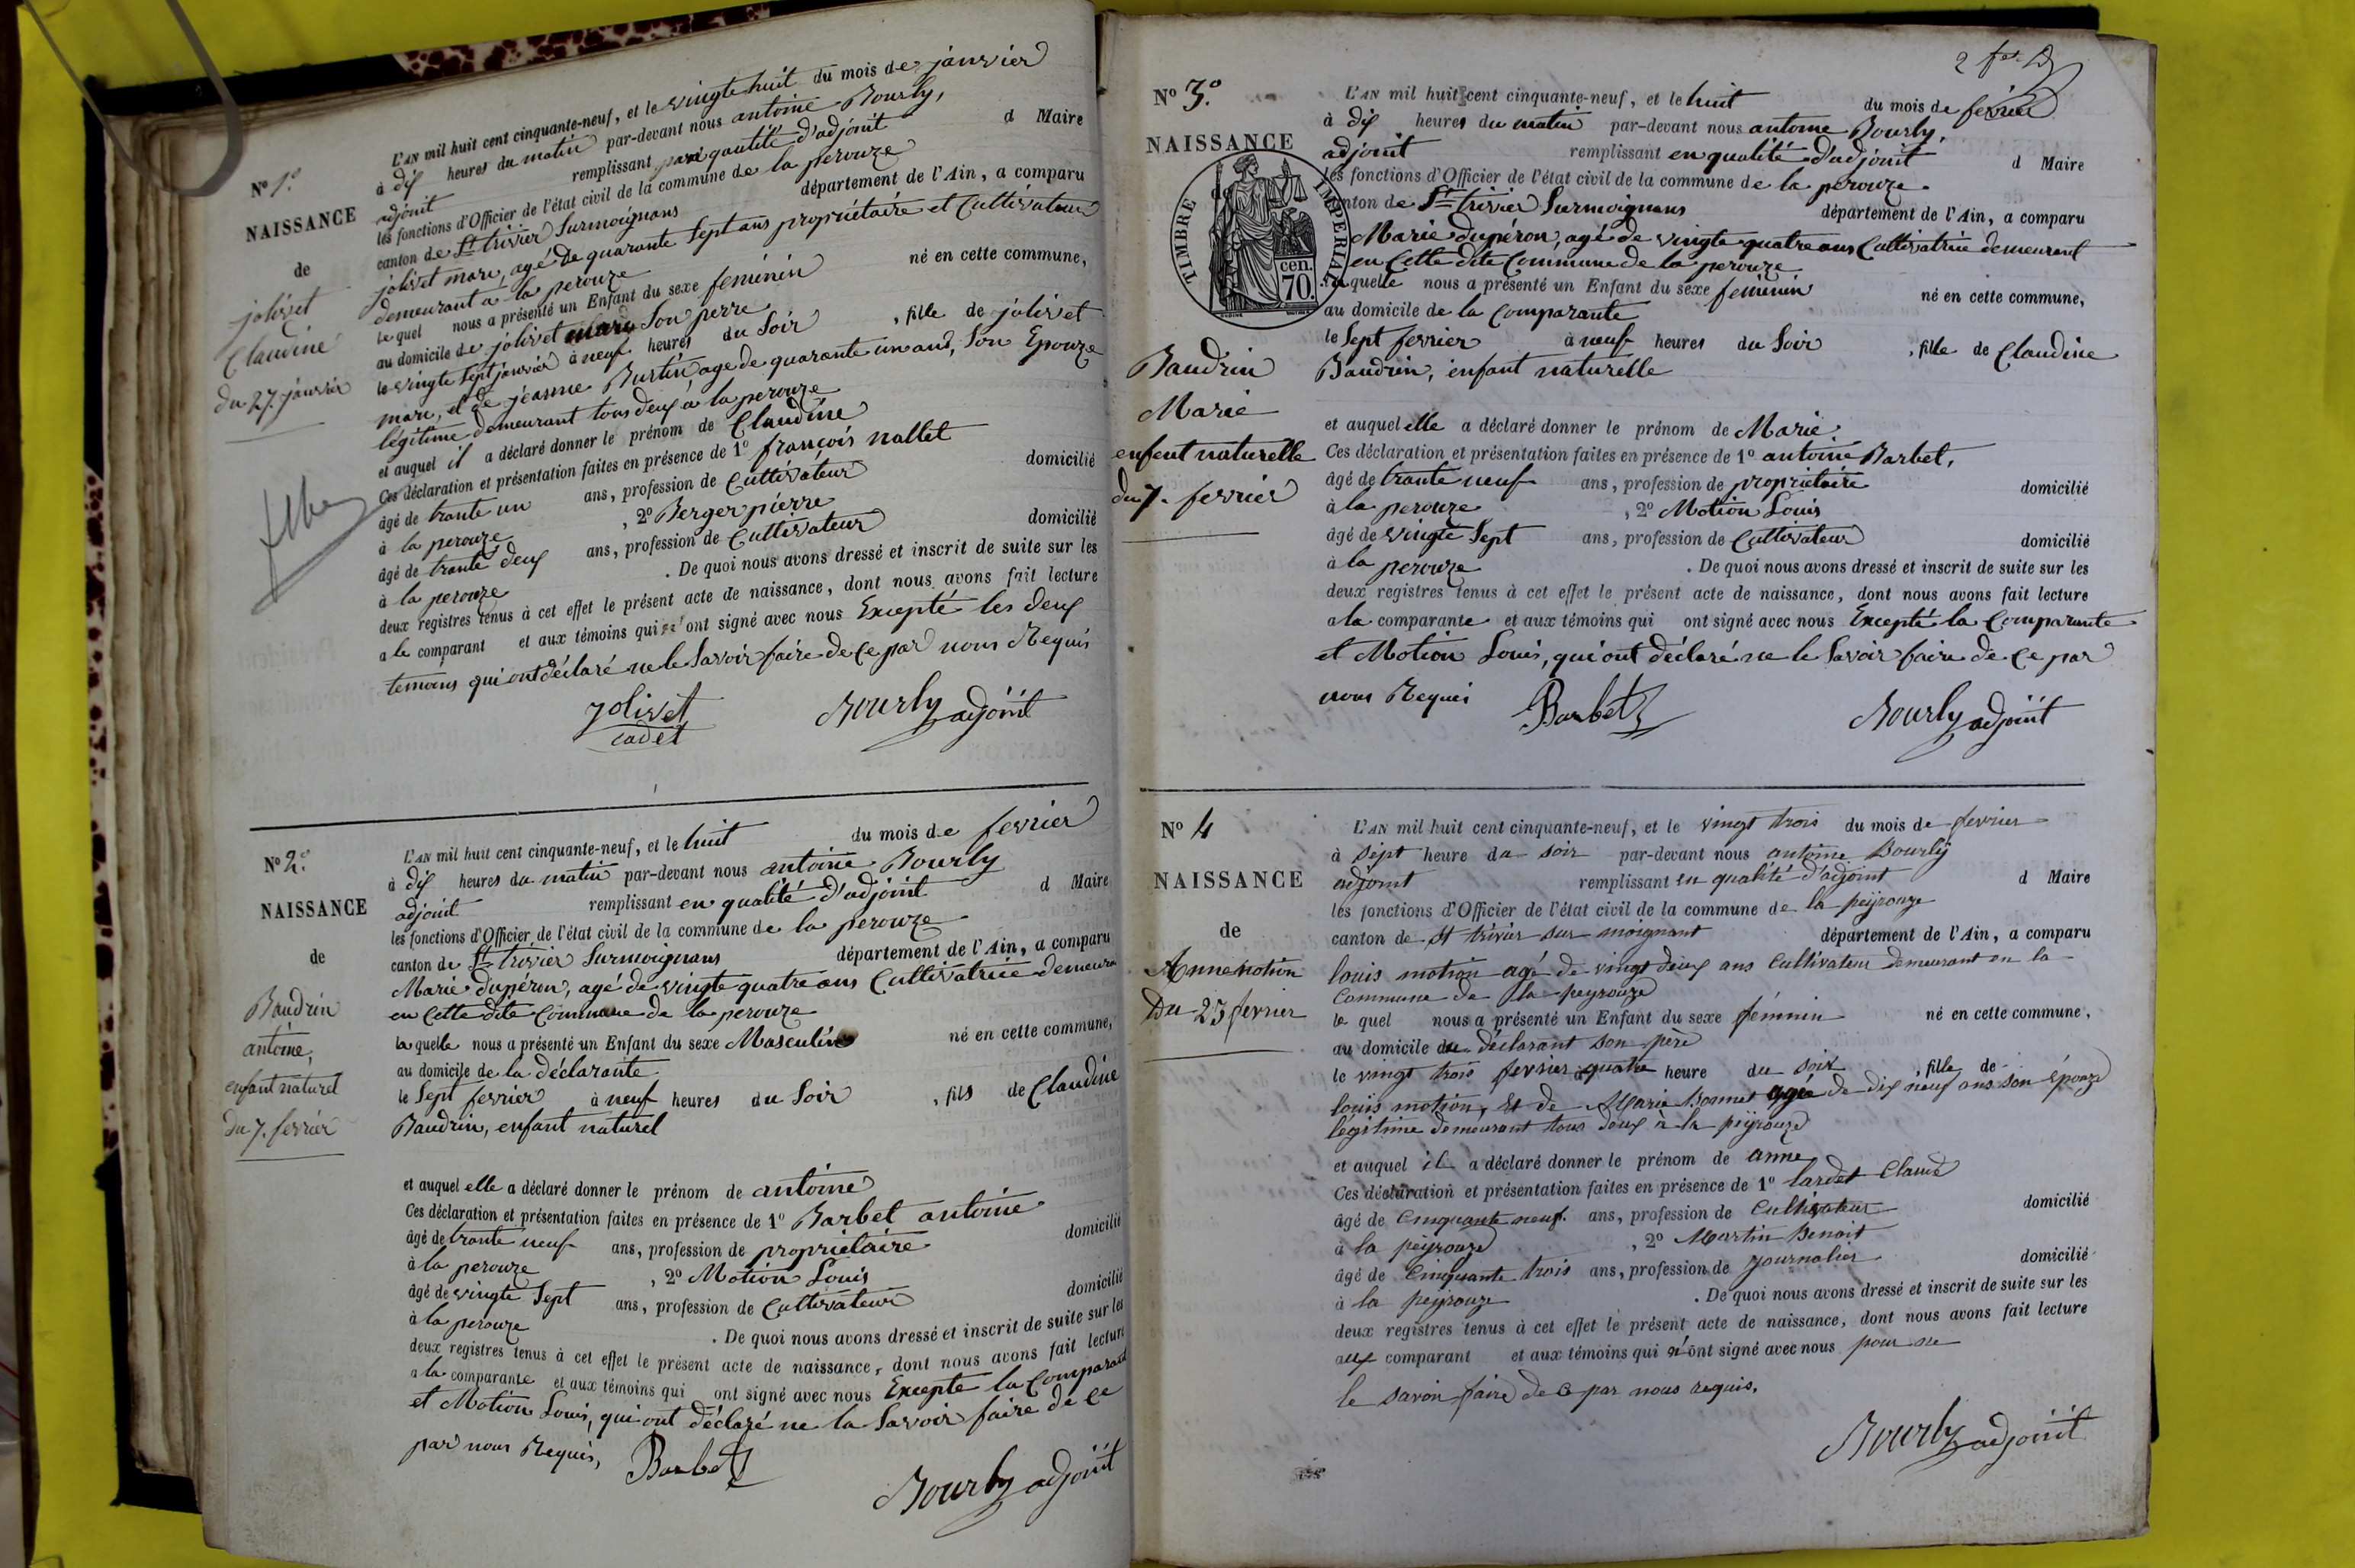 N° 1.°
NAISSANCE
de
jolivet
Claudine
du 27. janvier
L'AN mil huit cent cinquante-neuf, et le vingte huit du mois de janvier
à dix heures du matin par-devant nous antoine Bourly,
adjoint remplissant par qualité d'adjoint d Maire
les fonctions d'Officier de l'état civil de la commune de la perouze
canton de St trivier Surmoignans département de l'Ain, a comparu
jolivet marc, agé de quarante Sept ans propriétaire et Cultivateur
demeurant a la perouze
le quel nous a présenté un Enfant du sexe feminin né en cette commune,
au domicile de jolivet marc Son perre
le vingte Sept janvier à neuf heures du Soir , fille de jolivet
marc, et de jeanne Burtin age de quarante un ans, Son Epouze
légitime demeurant tous deux a la perouze
et auquel il a déclaré donner le prénom de Claudine
Ces déclaration et présentation faites en présence de 1° françois nallet
âgé de trante un ans, profession de Cultivateur domicilié
à la perouze , 2° Berger pierre
âgé de trante deux ans, profession de Cultivateur domicilié
à la perouze . De quoi nous avons dressé et inscrit de suite sur les
deux registres tenus à cet effet le présent acte de naissance, dont nous avons fait lecture
a le comparant et aux témoins qui ont signé avec nous Excepté les deux
temoins qui ont déclaré ne le Savoir faire de ce par nous Requis
jolivet
cadet
Bourly adjoint
N° 2.°
NAISSANCE
de
Baudrin
antoine,
enfant naturel
du 7. fevrier
L'AN mil huit cent cinquante-neuf, et le huit du mois de fevrier
à dix heures du matin par-devant nous antoine Bourly
adjoint remplissant en qualité d'adjoint d Maire
les fonctions d'Officier de l'état civil de la commune de la perouze
canton de St trivier Surmoignans département de l'Ain, a comparu
Marie dupéron, agé de vingte quatre ans Cultivatrice demeura
en Cette dite Commune de la perouze
la quelle nous a présenté un Enfant du sexe Masculin né en cette commune,
au domicile de la déclarante
le Sept fevrier à neuf heures du Soir , fils de Claudine
Baudrin, enfant naturel
et auquel elle a déclaré donner le prénom de antoine
Ces déclaration et présentation faites en présence de 1° Barbet antoine
âgé de trante neuf ans, profession de propriétaire domicilié
à la perouze , 2° Motion Louis
âgé de vingte Sept ans, profession de Cultivateur domicilié
à la perouze . De quoi nous avons dressé et inscrit de suite sur les
deux registres tenus à cet effet le présent acte de naissance, dont nous avons fait lecture
a la comparante et aux témoins qui ont signé avec nous Excepté la Comparant
et Motion Louis, qui ont déclaré ne la Savoir faire de ce
par nous Requis,
Barbet
Bourly adjoint
N° 3.°
NAISSANCE
de
TIMBRE IMPERIAL
70. cen.
Baudrin
Marie
enfent naturelle
du 7. fevrier
L'AN mil huit cent cinquante-neuf, et le huit du mois de fevrier
à dix heures du matin par-devant nous antoine Bourly,
adjoint remplissant en qualité d'adjoint d Maire
les fonctions d'Officier de l'état civil de la commune de la perouze.
canton de St trivier Surmoignans département de l'Ain, a comparu
Marie dupéron, agé de vingte quatre ans Cultivatrice demeurant
en Cette dite Commune de la perouze
la quelle nous a présenté un Enfant du sexe feminin né en cette commune,
au domicile de la Comparante
le Sept fevrier à neuf heures du Soir , fille de Claudine
Baudrin, enfant naturelle
et auquel elle a déclaré donner le prénom de Marie
Ces déclaration et présentation faites en présence de 1° antoine Barbet,
âgé de trante neuf ans, profession de propriétaire domicilié
à la perouze , 2° Motion Louis
âgé de vingte Sept ans, profession de Cultivateur domicilié
à la perouze . De quoi nous avons dressé et inscrit de suite sur les
deux registres tenus à cet effet le présent acte de naissance, dont nous avons fait lecture
a la comparante et aux témoins qui ont signé avec nous Excepté la Comparante
et Motion Louis, qui ont déclaré ne le Savoir faire de ce par
nous Requis
Barbet
Bourly adjoint
N° 4
NAISSANCE
de
Anne Motion
Du 23 fevrier
L'AN mil huit cent cinquante-neuf, et le vingt trois du mois de fevrier
à sept heure du soir par-devant nous antoine Bourly
adjoint remplissant en qualité d'adjoint d Maire
les fonctions d'Officier de l'état civil de la commune de la peyrouze
canton de St trivier sur moignant département de l'Ain, a comparu
louis motion agé de vingt deux ans Cultivateur demeurant en la
Commune de la peyrouze
le quel nous a présenté un Enfant du sexe féminin né en cette commune,
au domicile du déclarant son père
le vingt trois fevrier à quatre heure du soir , fille de
louis motion, et de Marie Bonnet agée de dix neuf ans son épouze
légitime demeurant tous deux à la peyrouze
et auquel il a déclaré donner le prénom de anne
Ces déclaration et présentation faites en présence de 1° lardet Claude
âgé de Cinquante neuf ans, profession de Cultivateur domicilié
à la peyrouze , 2° Martin Benoit
âgé de Cinquante trois ans, profession de journalier domicilié
à la peyrouze . De quoi nous avons dressé et inscrit de suite sur les
deux registres tenus à cet effet le présent acte de naissance, dont nous avons fait lecture
aux comparant et aux témoins qui n'ont signé avec nous pour ne
le savoir faire de ce par nous requis.
Bourly adjoint